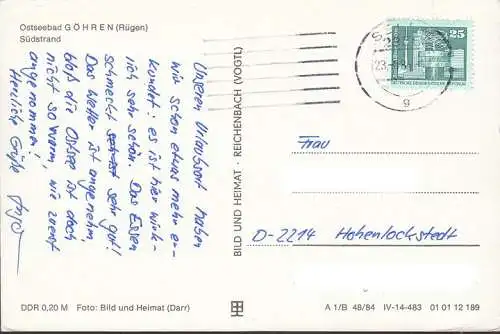 Ostseebad GÖHREN (Rügen)
Südstrand
Unseren Urlaubsort haben
wir schon etwas mehr er-
kundet: es ist hier wirk-
lich sehr schön. Das Essen
schmeckt sehr gut!
Das Wetter ist angenehm,
bloß die Ostsee ist doch
nicht so warm, wie zuerst
angenommen!
Herzliche Grüße
BILD UND HEIMAT · REICHENBACH (VOGTL)
25
g
Frau
D-2214 Hohenlockstedt
DDR 0,20 M Foto: Bild und Heimat (Darr)
A 1/B 48/84 IV-14-483 01 01 12 189